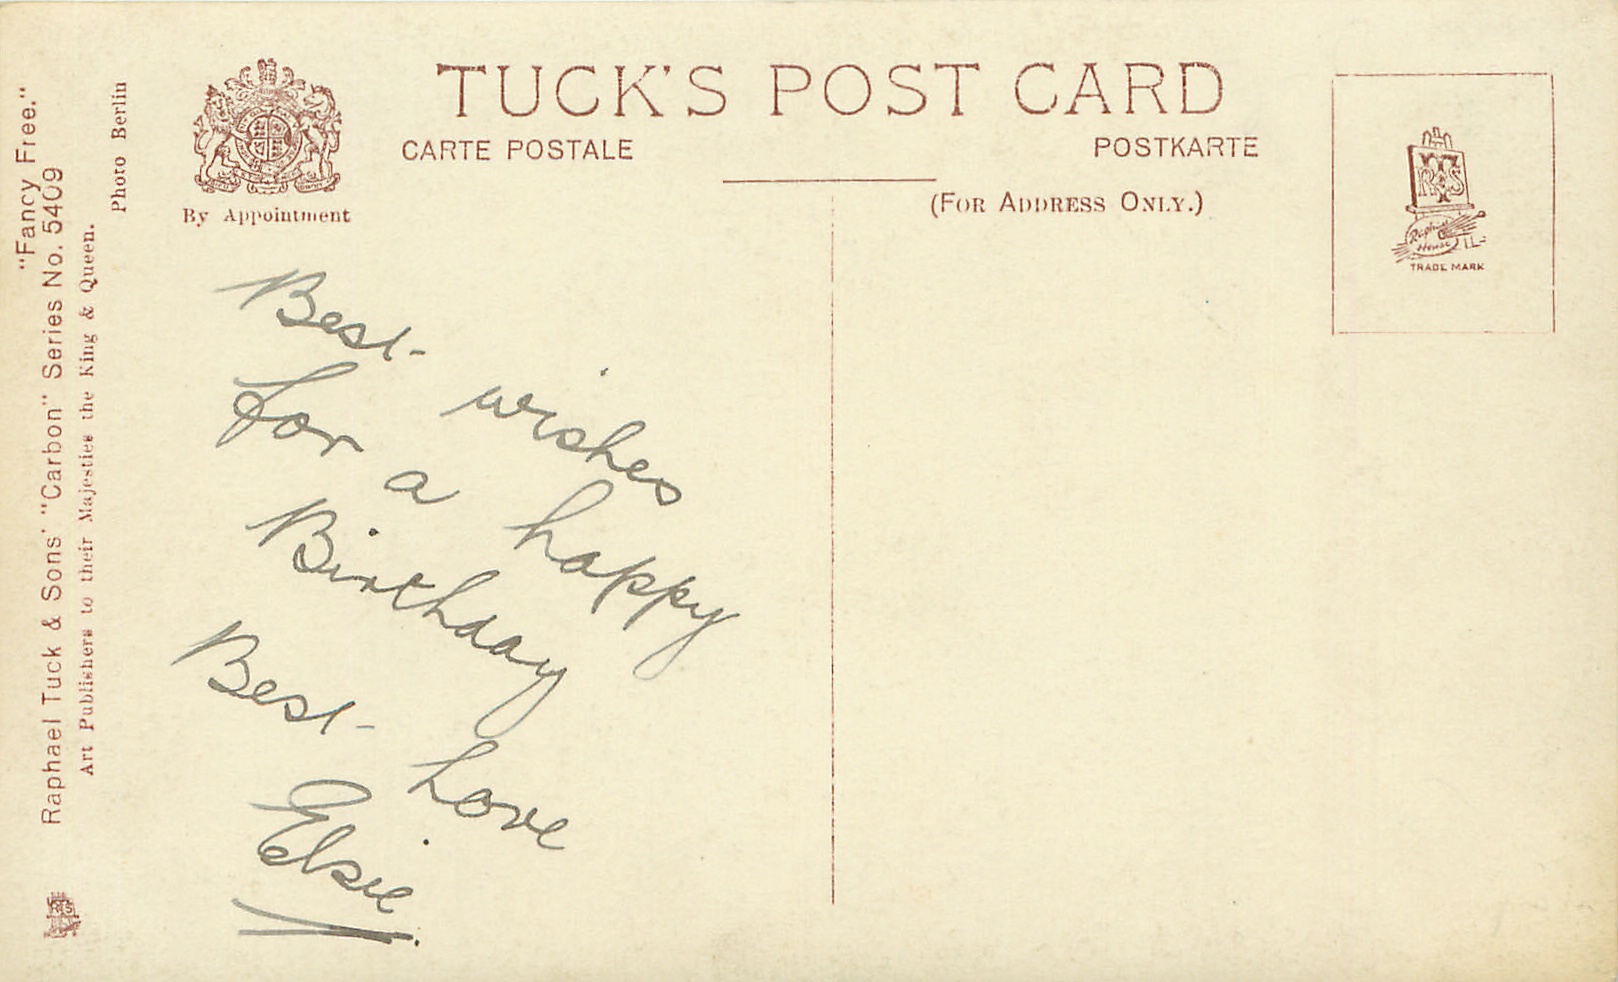 TUCK'S POST CARD
CARTE POSTALE
POSTKARTE
(FOR ADDRESS ONLY.)
By Appointment
"Fancy Free."
Raphael Tuck & Sons' "Carbon" Series No. 5409
Art Publishers to their Majesties the King & Queen.
Photo Berlin
RTS
Raphael
House
TRADE MARK
Best wishes
for a happy
Birthday
Best love
Elsie
RTS